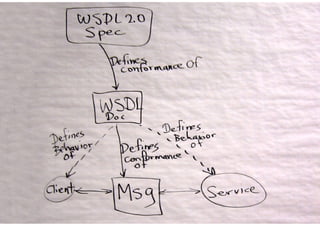 WSDL 2.0
Spec
Defines
Conformance Of
WSDL
Doc
Defines
Behavior
Of
Defines
Conformance
of
Defines
Behavior
of
Client
Msg
Service